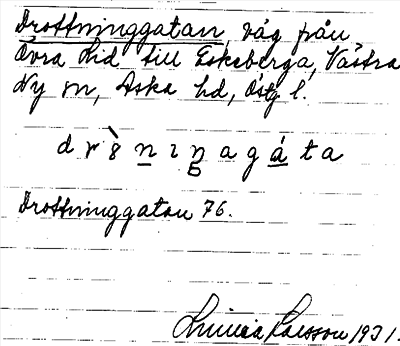 Drottninggatan, väg från
Övra Lid till Eskeberga, Västra
Ny sn, Aska hd, Östg l.
d r ò̀ n ı ŋ a g á t a
Drottninggatan 76.
Linnéa Larsson 1931.